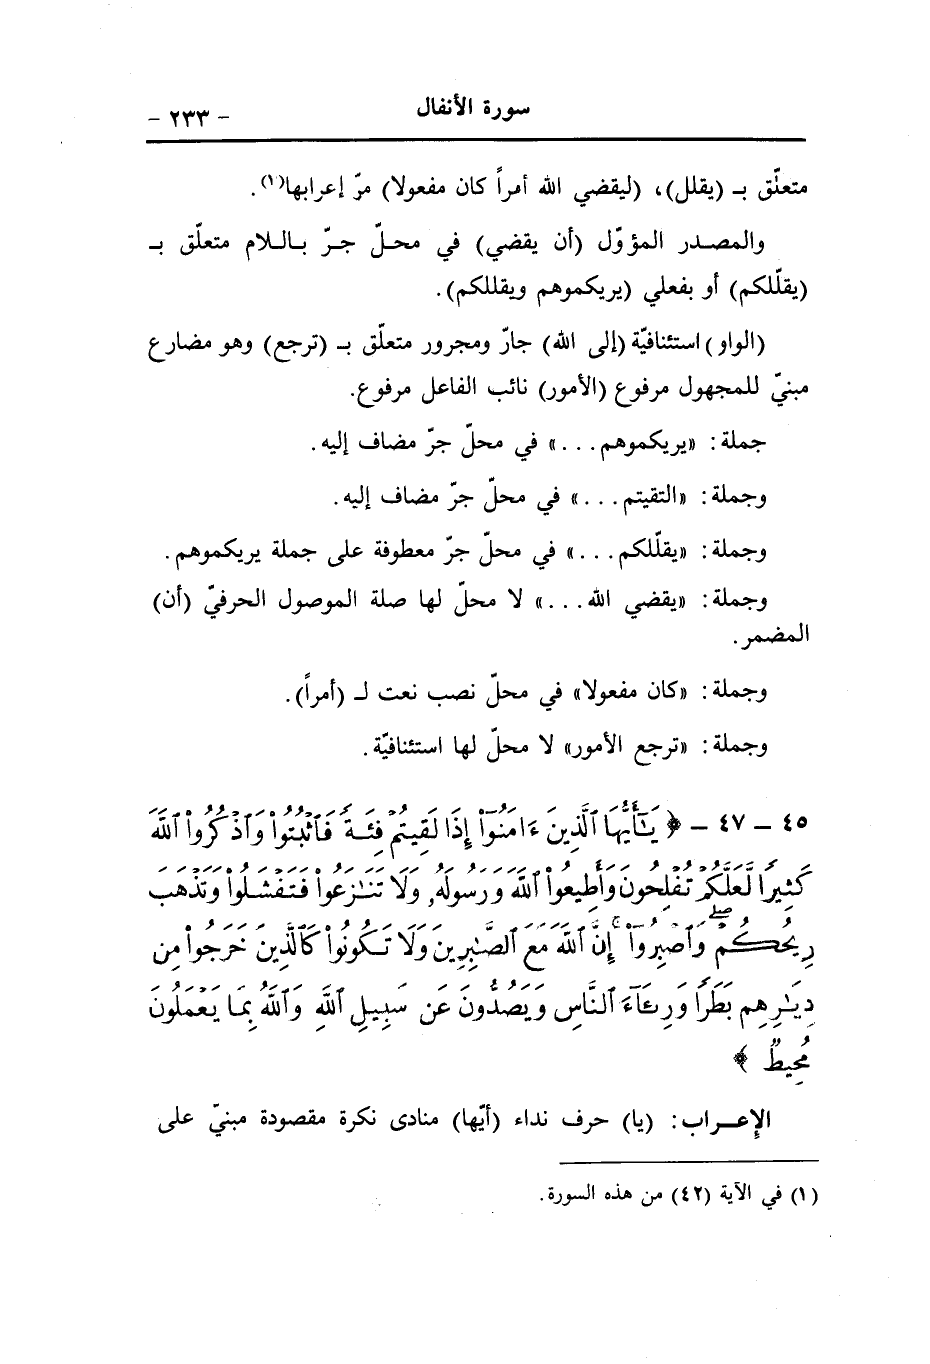 سورة الأنفال
- ٢٣٣ -
متعلّق بـ (يقلل)، (ليقضي الله أمراً كان مفعولا) مرّ إعرابها(١).
والمصدر المؤوّل (أن يقضي) في محلّ جرّ باللام متعلّق بـ
(يقلّلكم) أو بفعلي (يريكموهم ويقللكم).
(الواو) استئنافيّة (إلى الله) جارّ ومجرور متعلّق بـ (ترجع) وهو مضارع
مبنيّ للمجهول مرفوع (الأمور) نائب الفاعل مرفوع.
جملة: «يريكموهم...» في محلّ جرّ مضاف إليه.
وجملة: «التقيتم...» في محلّ جرّ مضاف إليه.
وجملة: «يقلّلكم...» في محلّ جرّ معطوفة على جملة يريكموهم.
وجملة: «يقضي الله...» لا محلّ لها صلة الموصول الحرفيّ (أن)
المضمر.
وجملة: «كان مفعولا» في محلّ نصب نعت لـ (أمراً).
وجملة: «ترجع الأمور» لا محلّ لها استئنافيّة.
٤٥ - ٤٧ - ﴿ يَـٰٓأَيُّهَا ٱلَّذِينَ ءَامَنُوٓا۟ إِذَا لَقِيتُمْ فِئَةً فَٱثْبُتُوا۟ وَٱذْكُرُوا۟ ٱللَّهَ
كَثِيرًا لَّعَلَّكُمْ تُفْلِحُونَ وَأَطِيعُوا۟ ٱللَّهَ وَرَسُولَهُۥ وَلَا تَنَـٰزَعُوا۟ فَتَفْشَلُوا۟ وَتَذْهَبَ
رِيحُكُمْ ۖ وَٱصْبِرُوٓا۟ ۚ إِنَّ ٱللَّهَ مَعَ ٱلصَّـٰبِرِينَ وَلَا تَكُونُوا۟ كَٱلَّذِينَ خَرَجُوا۟ مِن
دِيَـٰرِهِم بَطَرًا وَرِئَآءَ ٱلنَّاسِ وَيَصُدُّونَ عَن سَبِيلِ ٱللَّهِ وَٱللَّهُ بِمَا يَعْمَلُونَ
مُحِيطٌ ﴾
الإعراب: (يا) حرف نداء (أيّها) منادى نكرة مقصودة مبنيّ على
(١) في الآية (٤٢) من هذه السورة.